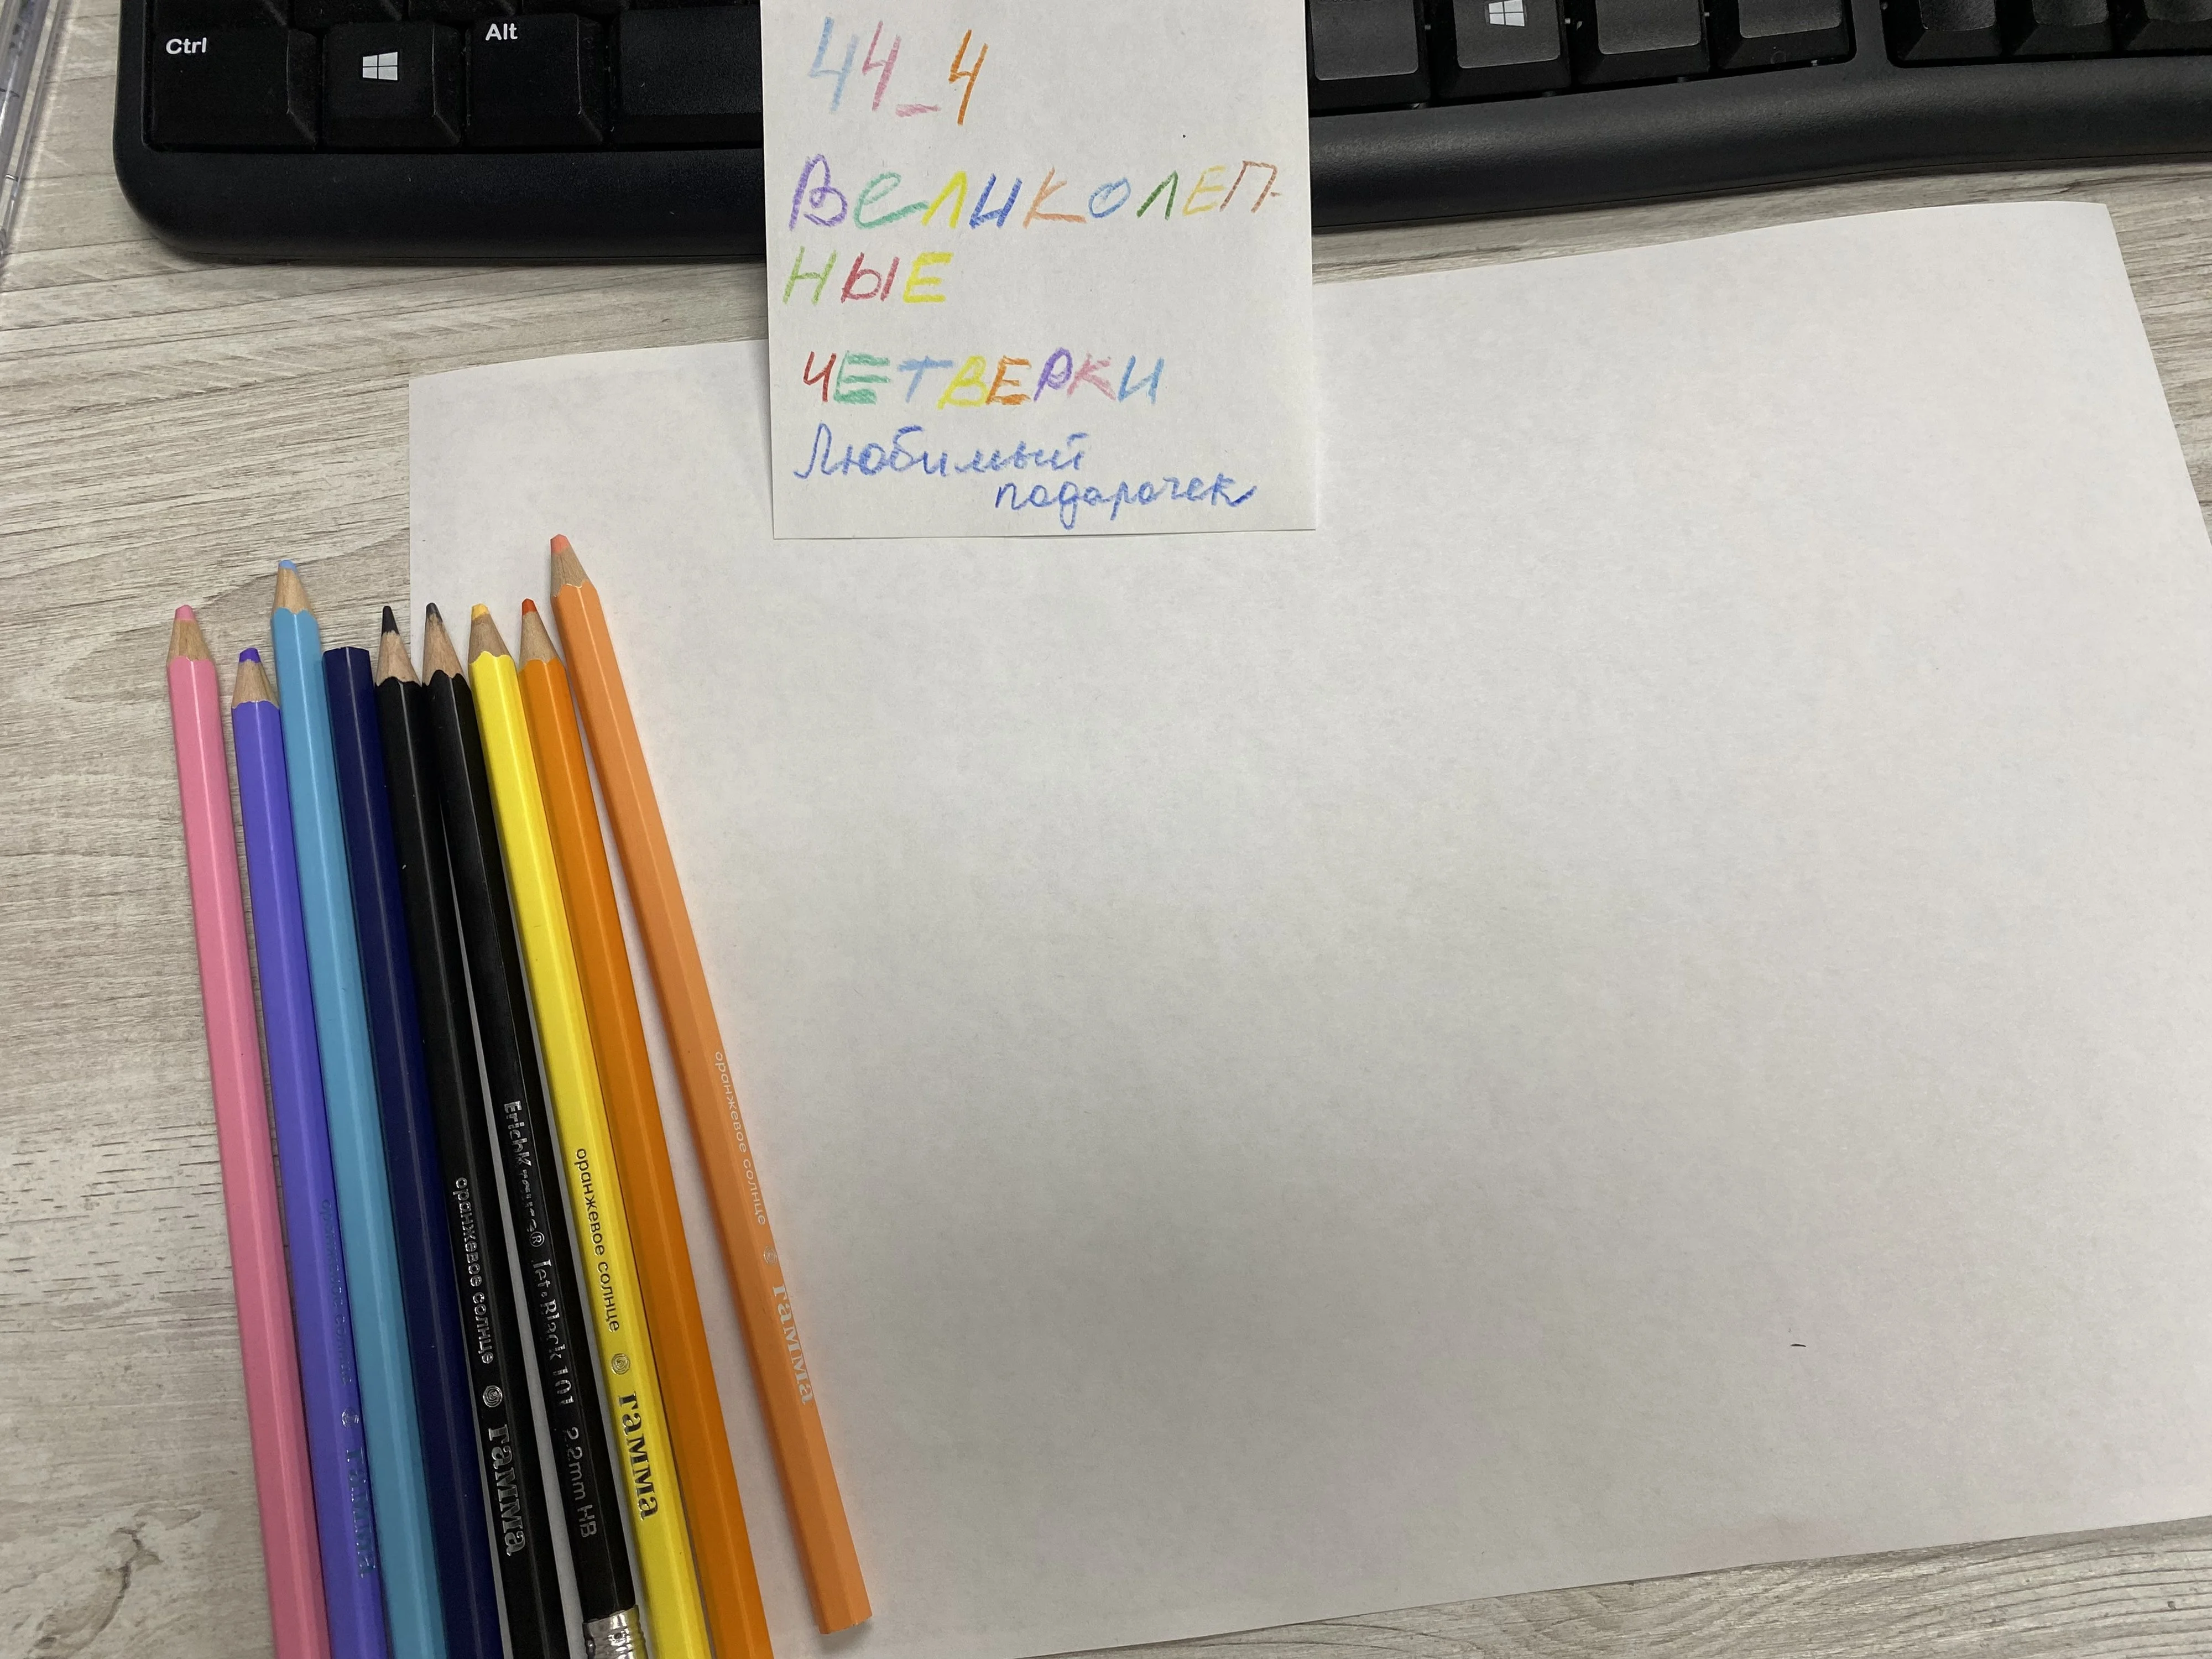 Ctrl
Alt
44_4
ВЕЛИКОЛЕП-
НЫЕ
ЧЕТВЕРКИ
Любимый
подарочек
оранжевое солнце гамма
оранжевое солнце гамма
ErichKrause® Jet-Black 101 2.2mm HB
оранжевое солнце гамма
гамма